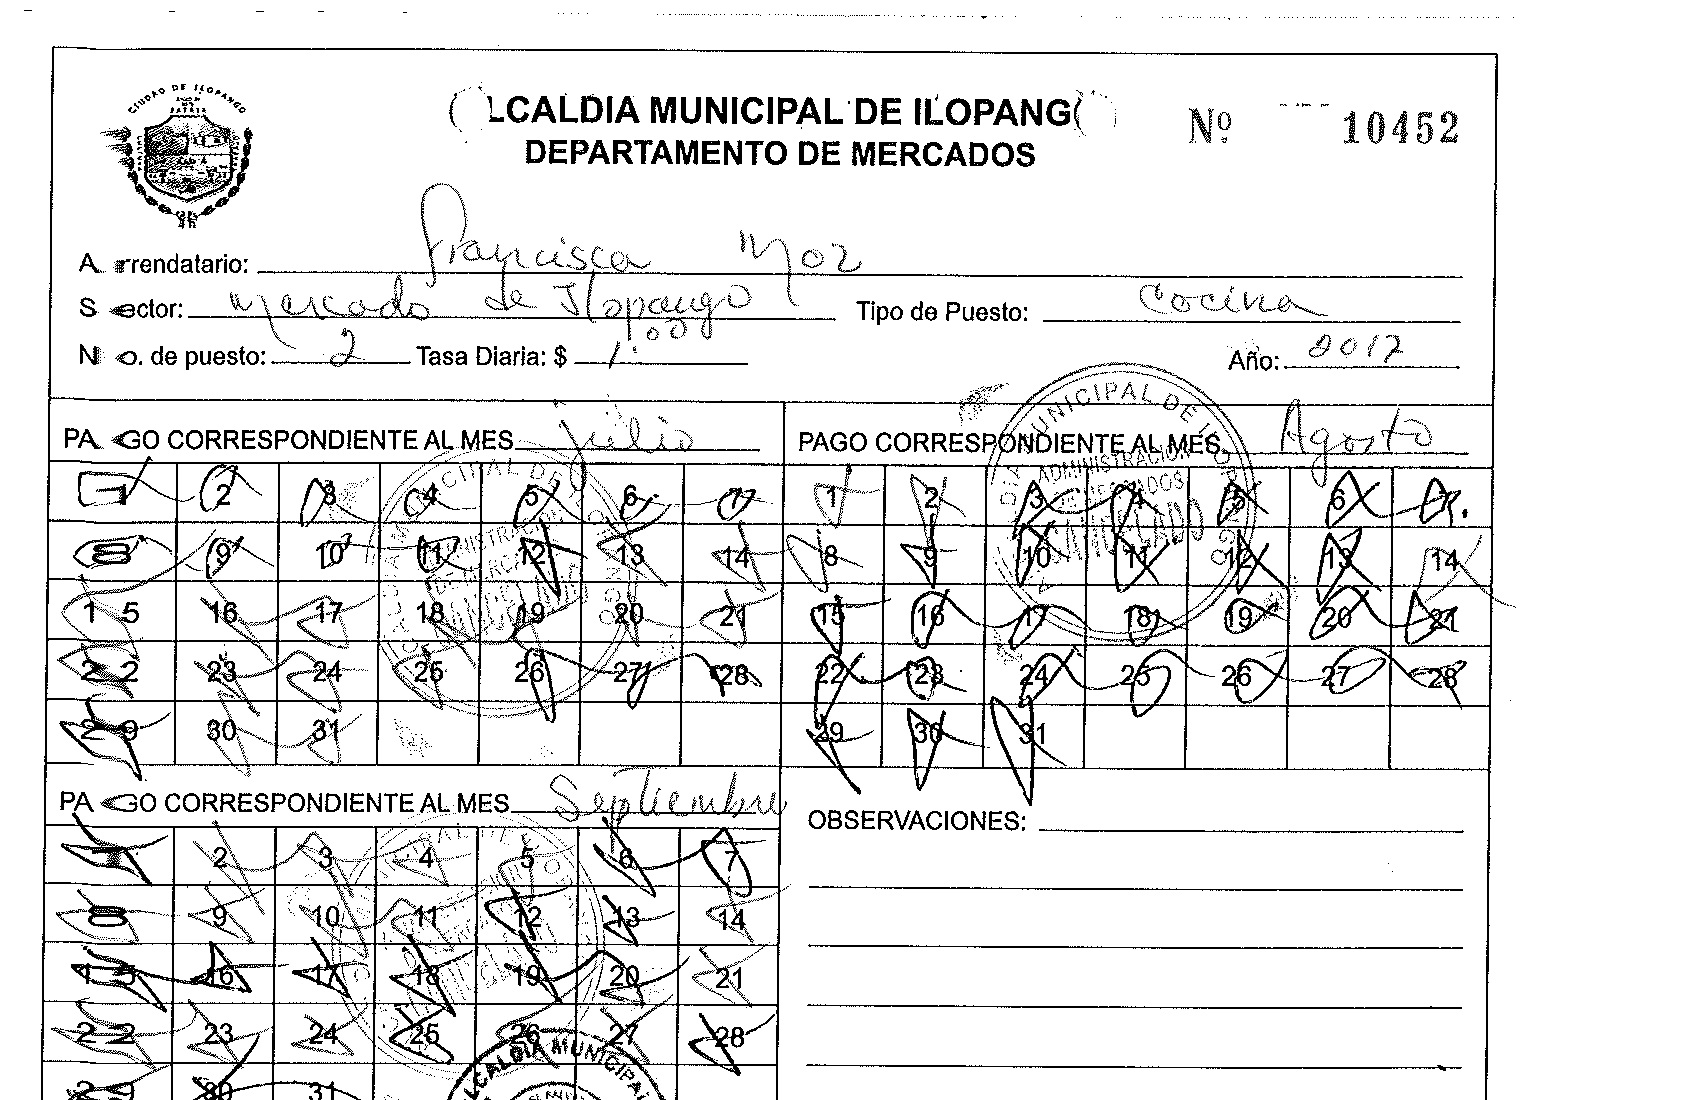 CIUDAD DE ILOPANGO
ALCALDIA MUNICIPAL DE ILOPANGO
DEPARTAMENTO DE MERCADOS
Nº 10452
Arrendatario: Francisca Moz
Sector: Mercado de Ilopango Tipo de Puesto: Cocina
No. de puesto: 2 Tasa Diaria: $ 1.00 Año: 2017
PAGO CORRESPONDIENTE AL MES Julio
1 2 3 4 5 6 7
8 9 10 11 12 13 14
15 16 17 18 19 20 21
22 23 24 25 26 27 28
29 30 31
PAGO CORRESPONDIENTE AL MES Agosto
1 2 3 4 5 6 7
8 9 10 11 12 13 14
15 16 17 18 19 20 21
22 23 24 25 26 27 28
29 30 31
ADMINISTRACION
DE MERCADOS
CANCELADO
PAGO CORRESPONDIENTE AL MES Septiembre
1 2 3 4 5 6 7
8 9 10 11 12 13 14
15 16 17 18 19 20 21
22 23 24 25 26 27 28
29 30 31
ALCALDIA MUNICIPAL
OBSERVACIONES: